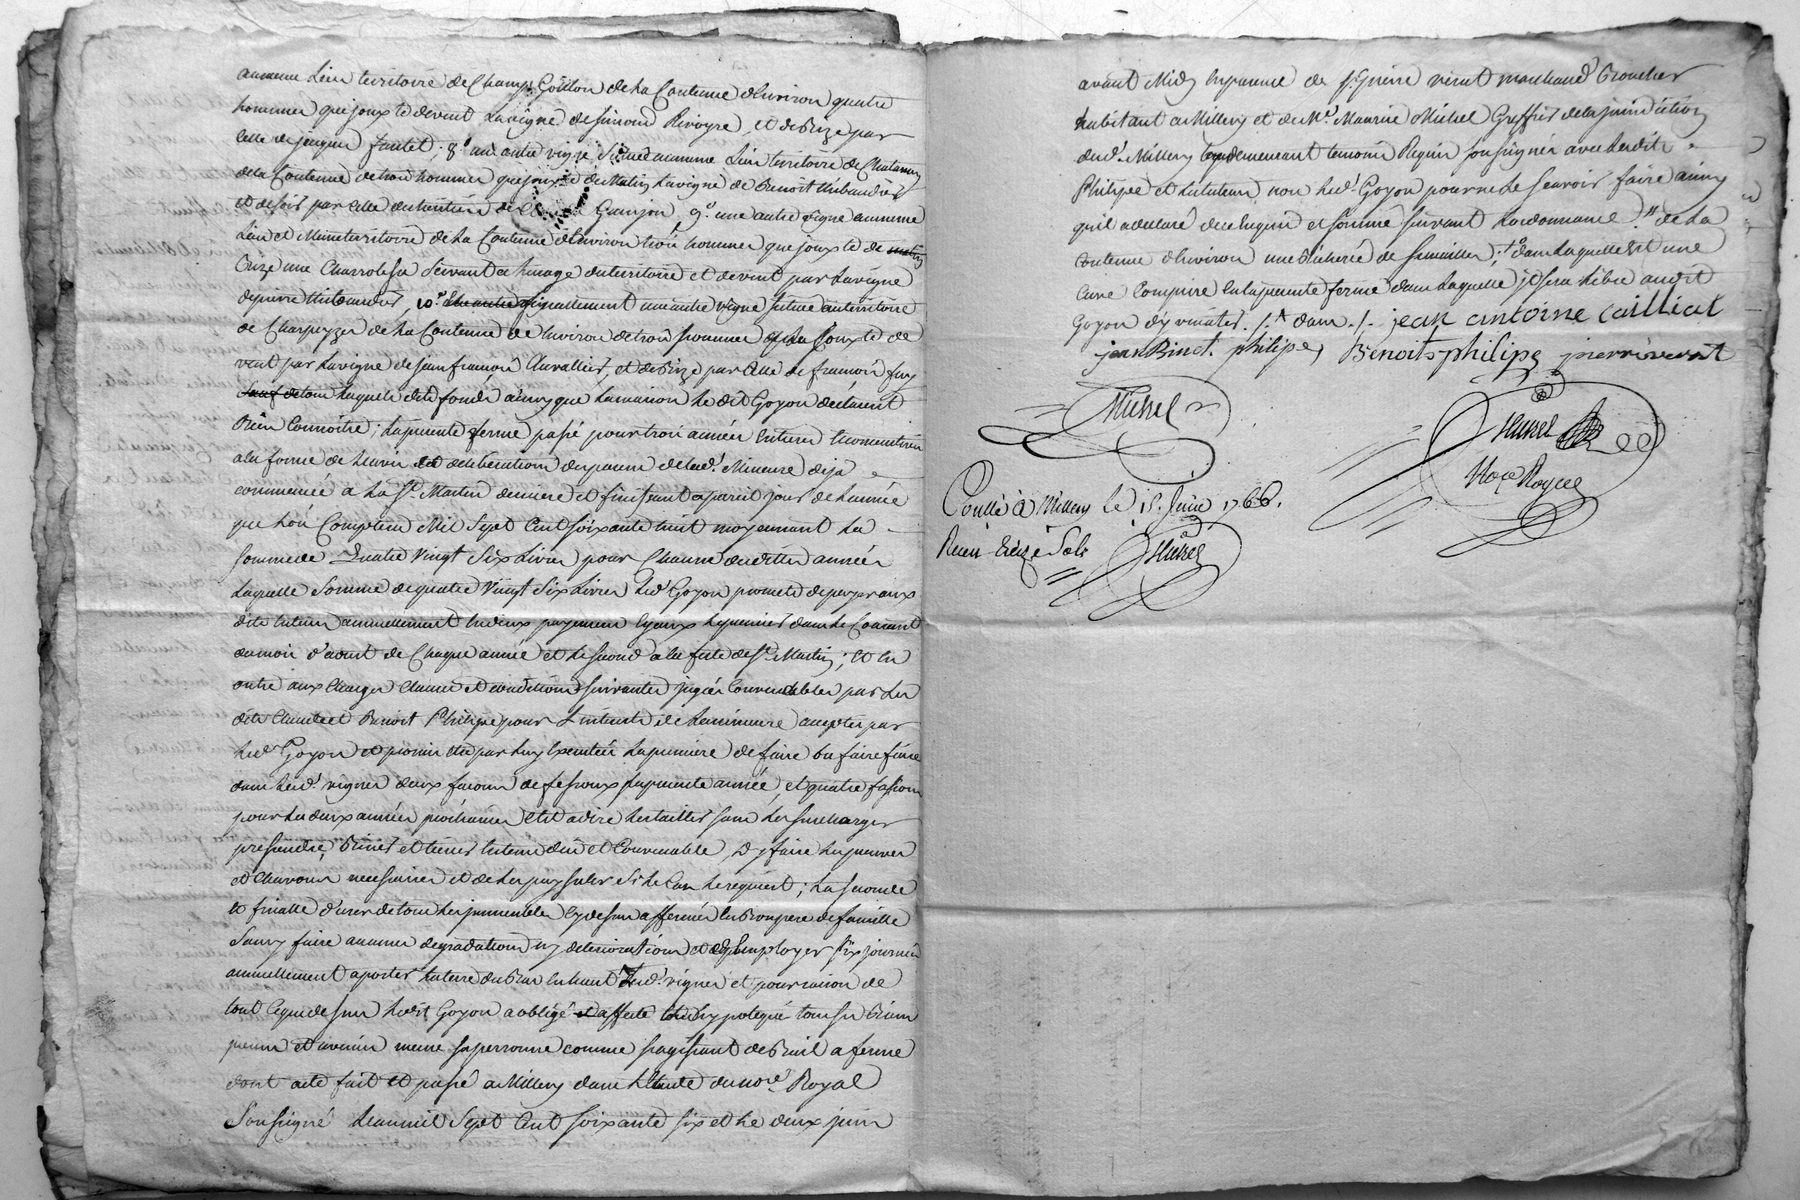 au meme Lieu territoire de Champ Goillon de la Contenue d'huviron quatre
hommés que joux te devent La vigne de simond Rivoyre, et de Bize par
celle de jacques fautet; 8° une autre vigne située au meme Lieu territoire de
de la Contenue de trois hommés que joux te de Matin La vigne de Benoit thibaudier
et de soir par celle des heritiers de Gunjon, 9° une autre vigne au meme
Lieu et Meme territoire de La Contenue d'huviron trois hommés que joux te de matin
Bize une Charroliere servant a husage du territoire et devent par La vigne
de pierre thibaudier, 10° Egallement une autre vigne située au territoire
de Charpeyzes de La Contenue de huviron de trois hommés joux te de
vent par La vigne de jean francois Chavallier, et de Bize par celle de francois
sauf de tous Laquels dits fonds ainsy que La maison Le dit Goyon declarent
Bien Connoitre; La presente ferme passé pour trois années Entieres
a la forme de Lavis et deliberation des parens de Lad. Mineure deja
commencée a La St. Martin derniere et finissant a pareil jour de L'année
que L'on Comptera Mil Sept Cent soixante huit moyennant La
somme de Quatre Vingt Six Livres pour Chacune desdittes années
Laquelle somme de quatre Vingt Six Livres Led. Goyon promet de payer aux
dits tuteurs annuellement En deux payemens Egaux Le premier dans Le Courant
du mois d'aoust de Chaque année et Le second a la feste de St. Martin; Et En
outre aux Charges Clauses et conditions suivantes jugées Convenables par Les
dits Benoit Philipe pour L'interest de La mineure accepter par
Led. Goyon et promis etre par Luy Executées La premiere de faire ou faire faire
dans Lesd. vignes deux facons de fessoux La presente année, et quatre fassons
pour Les deux années prochaines C'est a dire Les tailler sans Les surcharger
Biner et tiercer En tems du et Convenable, D'y faire Les preuves
et Chavons necessaires et de Les si Le Cas Le requiert; La seconde
Et finalle d'user de tous Les jmmeubles Cy dessus affermés En Bon pere de famille
sans y faire aucunes degradations ny deteriorations et d'Employer six journées
annuellement a porter La terre du Bas En haut Desd. vignes et pour raison de
tout Ce que dessus Ledit Goyon a obligé affecté et hypotequé tous ses Biens
presens et avenirs meme sa personne comme s'agissant de Bail a ferme
dont acte fait et passé a Millery dans L'Etude du no.re Royal
Soussigné L'an mil Sept Cent soixante six et Le deux juin
avant Midy En presence de Sr. Pierre verat marchand Boucher
habitant a Millery et de Mr. Maurice Michel Greffier de la jurisdiction
dud. Millery temoins Requis soussignés avec Lesdits
Philipe et Le tuteur non Led. Goyon pour ne Le scavoir faire ainsy
qu'il a declaré de ce Enquis et sommé suivant L'ordonnance. de La
contenue d'huviron une Bicherée de semailles; dans Laquelle Est une
Cuve Comprise En La presente ferme dans Laquelle il sera Libre audit
Goyon d'y cuver. dans. jean antoine cailliat
jean Binet. philipe, Benoits philipe pierre verat
Michel
Michel
No.re Royal
Conllé à Millery Le 15. Juin 1766.
Receu treize Sols Michel